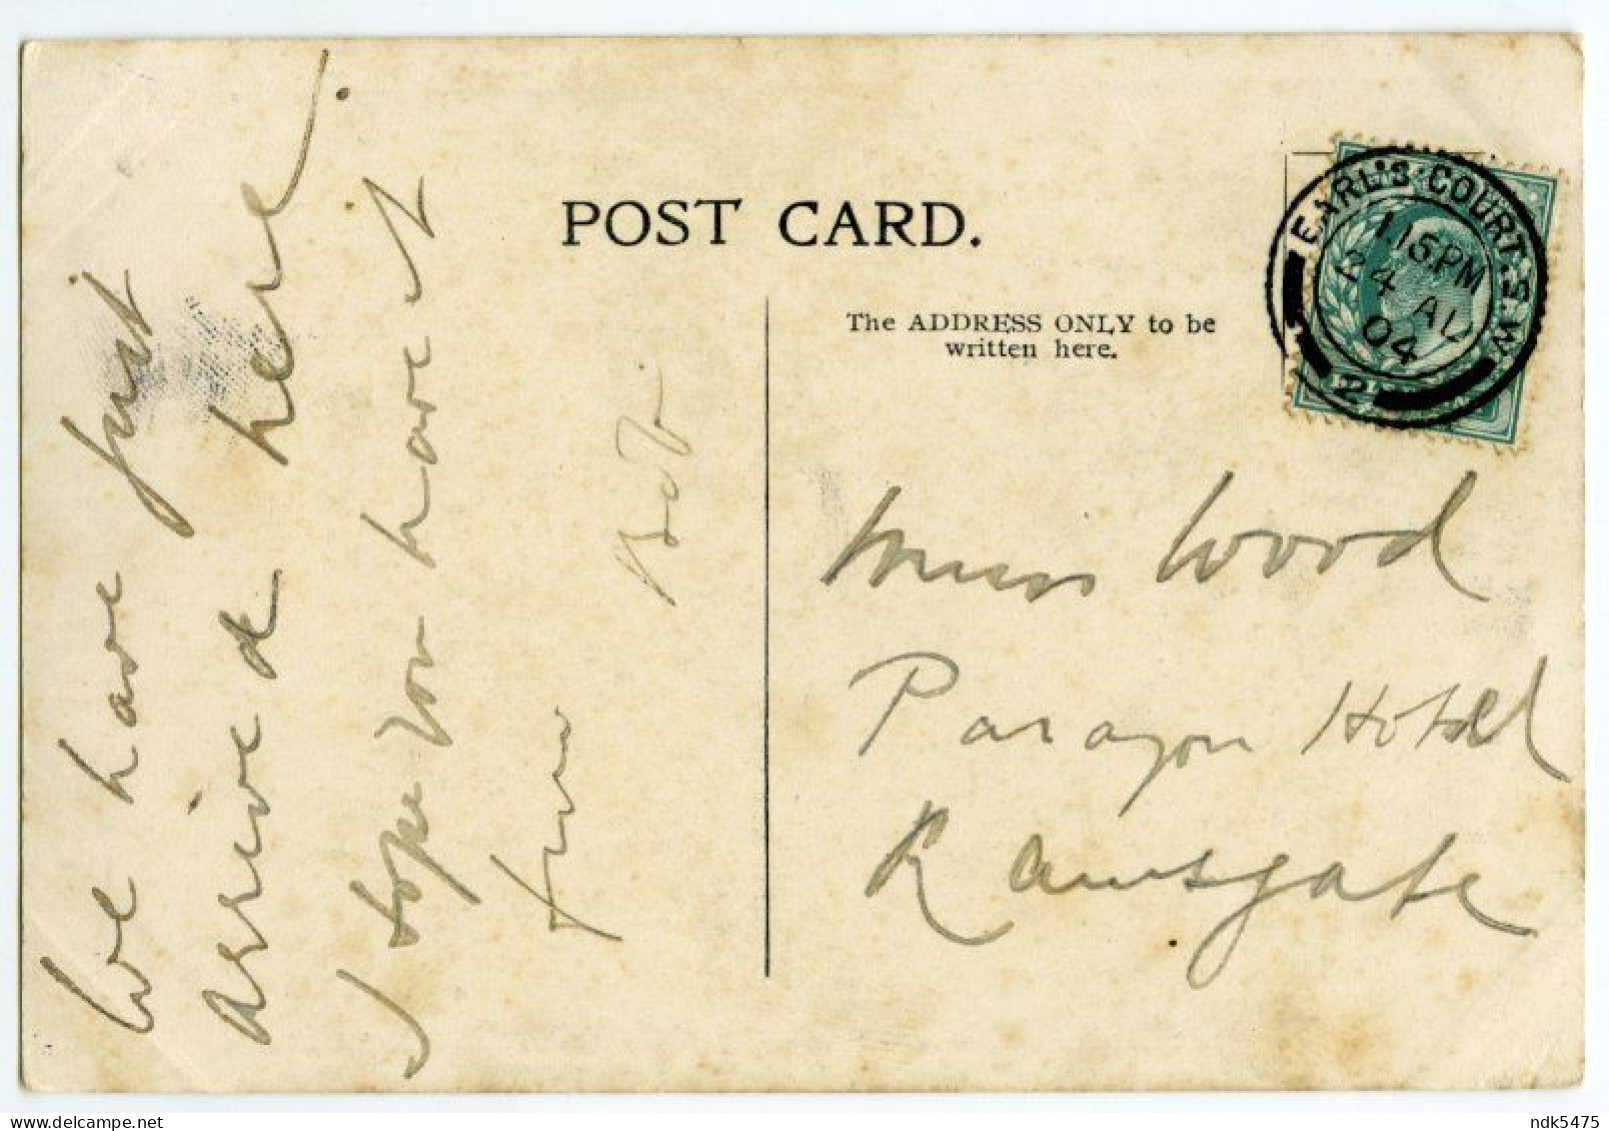 POST CARD.
The ADDRESS ONLY to be
written here.
EARL'S.COURT.S.W.
1.15PM
AU
04
2
Miss Wood
Paragon Hotel
Ramsgate
We have just
arrived here.
I hope you have it
fine
Bob
ndk5475